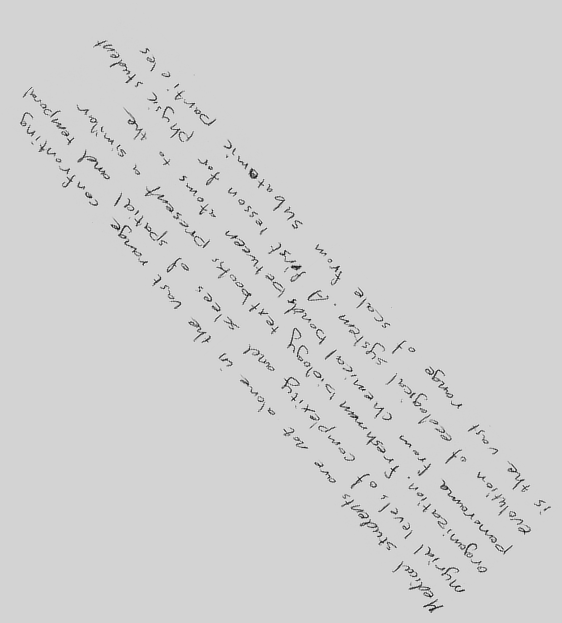 Medical students are not alone in the vast range confronting
myrial levels of complexity and scles of spatial and temporal
organization. Freshman biology textbooks present a similar
panorama from chemical bonds between atoms to the
evolution of ecological system. A first lesson for physic student
is the vast range of scale from subatomic particles